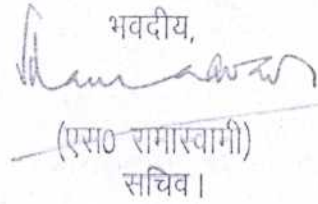 भवदीय,
(एस0 रामास्वामी)
सचिव।